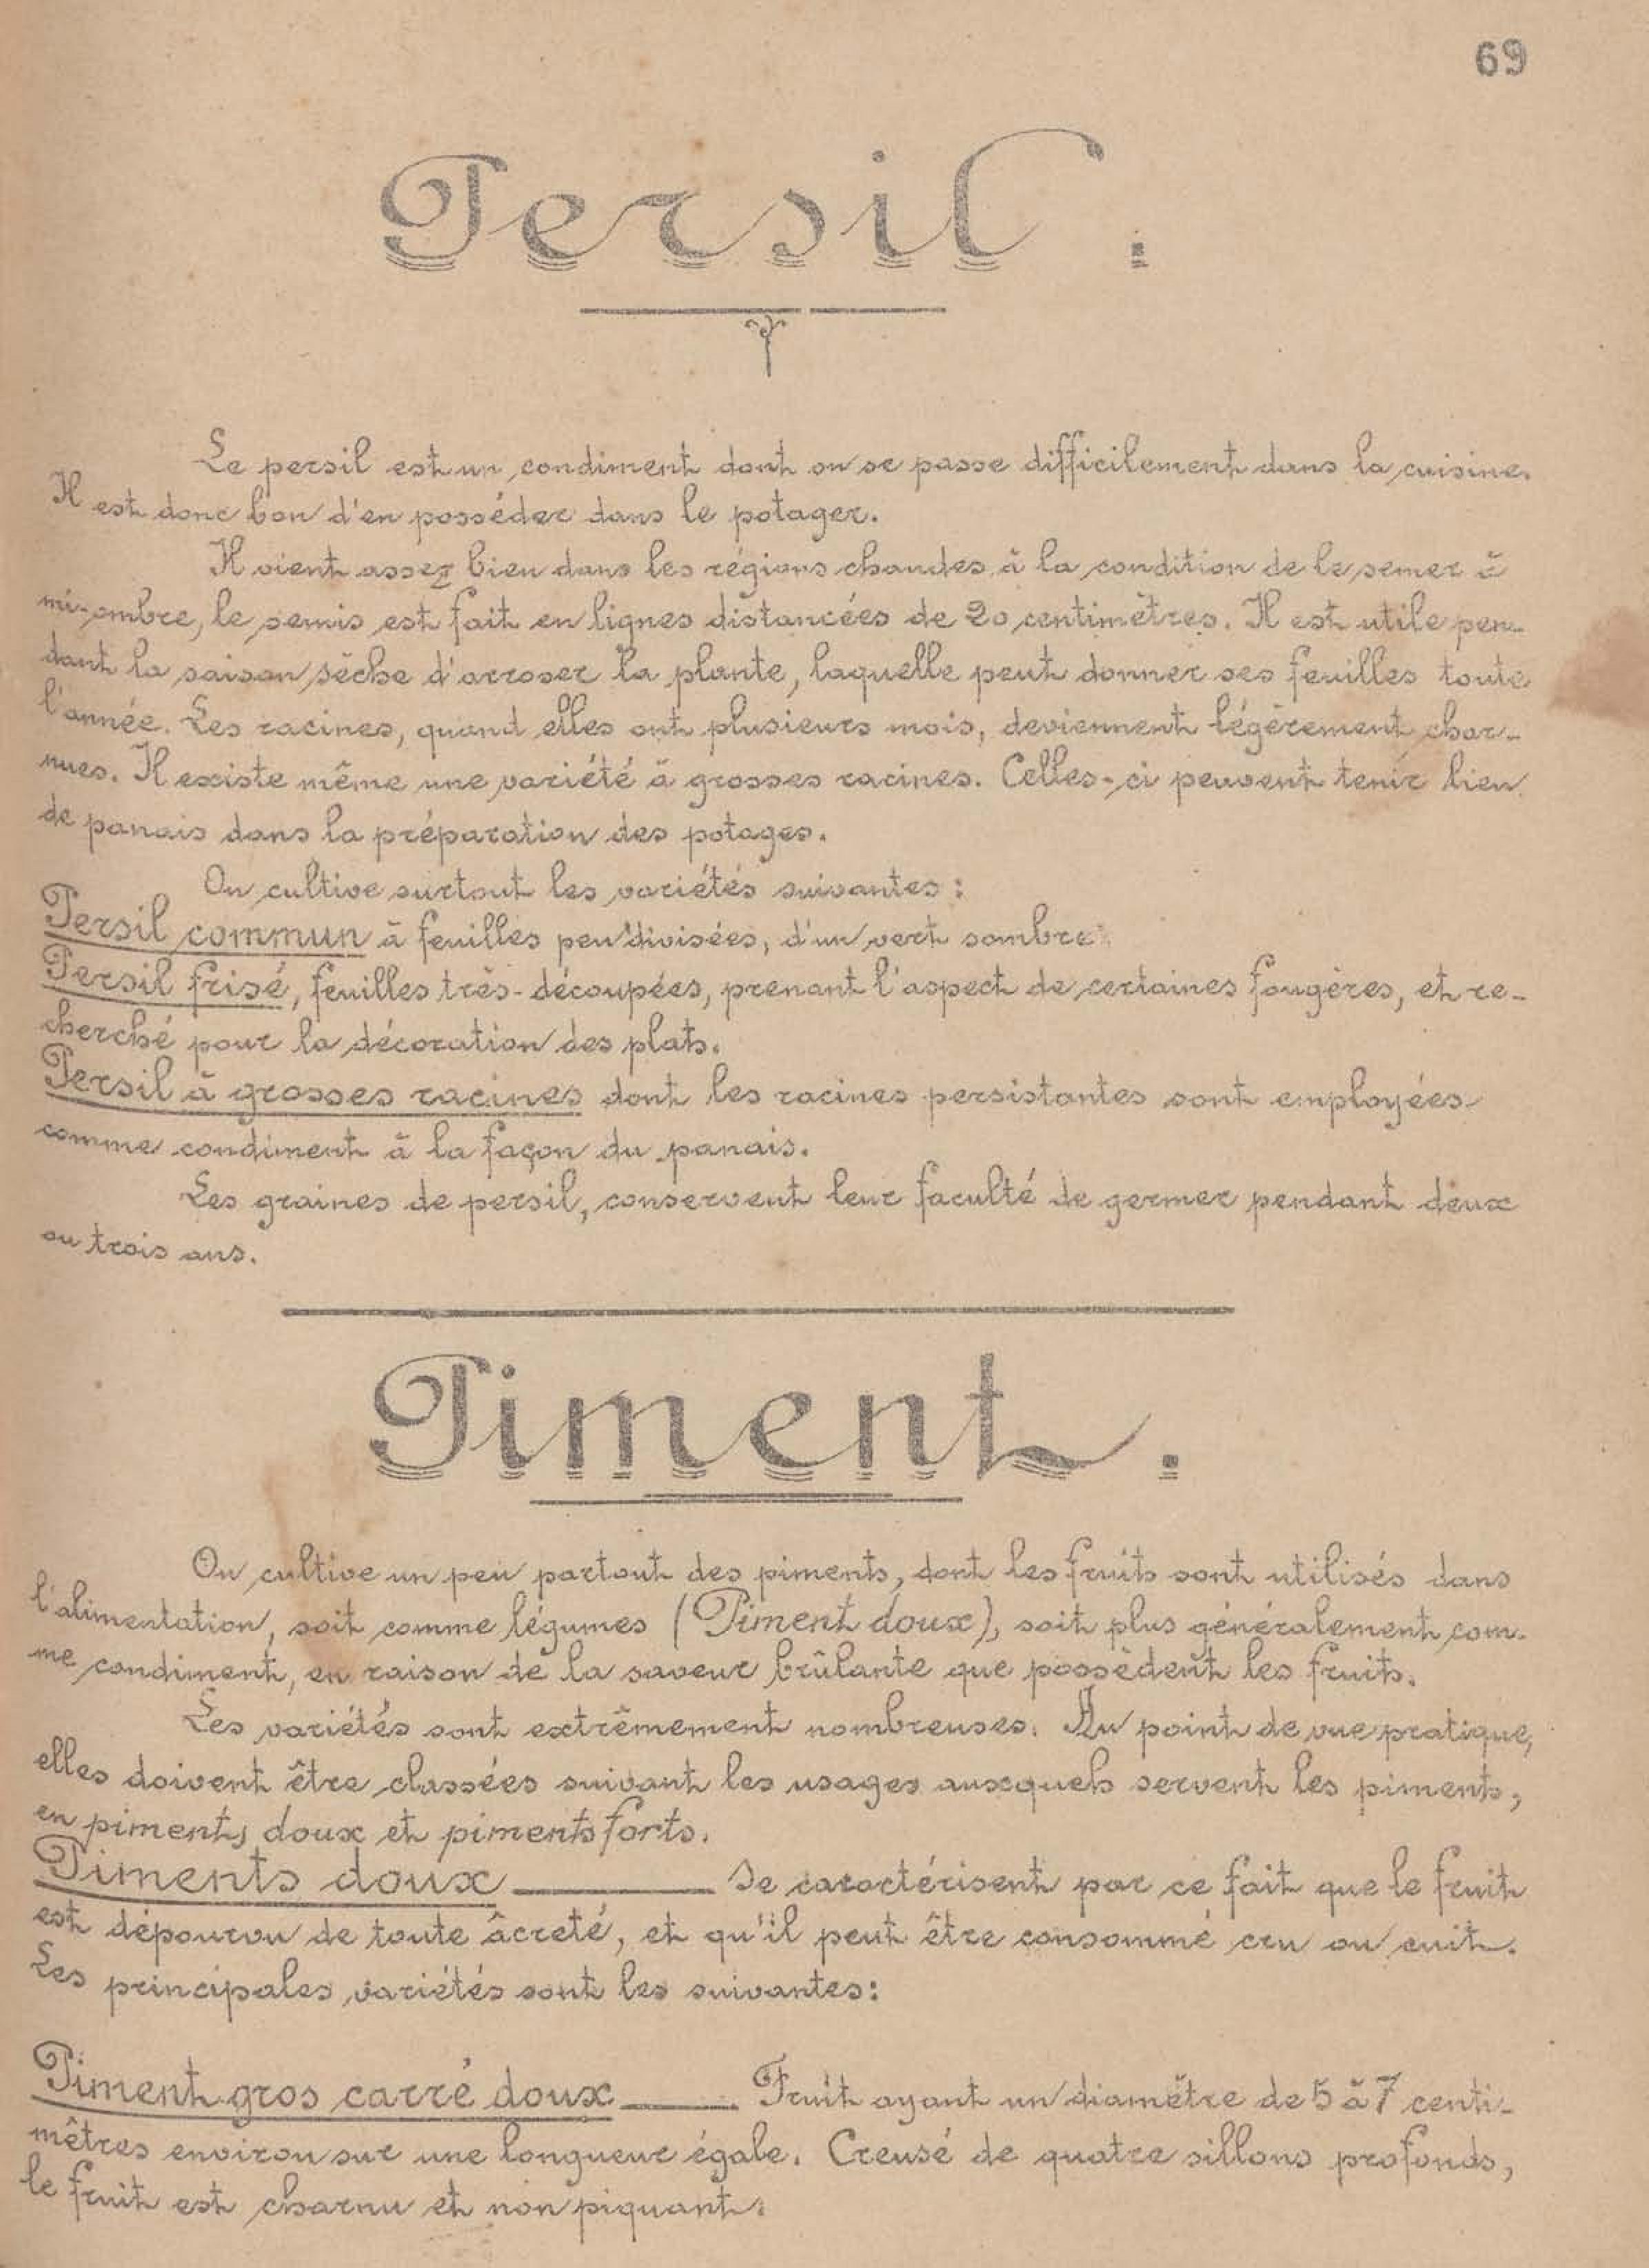 69
Persil.
Le persil est un condiment dont on se passe difficilement dans la cuisine.
Il est donc bon d'en posséder dans le potager.
Il vient assez bien dans les régions chaudes à la condition de le semer à
mi-ombre, le semis est fait en lignes distancées de 20 centimètres. Il est utile pen-
dant la saison sèche d'arroser la plante, laquelle peut donner ses feuilles toute
l'année. Les racines, quand elles ont plusieurs mois, deviennent légèrement char-
nues. Il existe même une variété à grosses racines. Celles-ci peuvent tenir lieu
de panais dans la préparation des potages.
On cultive surtout les variétés suivantes:
Persil commun à feuilles peu divisées, d'un vert sombre.
Persil frisé, feuilles très-découpées, prenant l'aspect de certaines fougères, et re-
cherché pour la décoration des plats.
Persil à grosses racines dont les racines persistantes sont employées
comme condiment à la façon du panais.
Les graines de persil, conservent leur faculté de germer pendant deux
ou trois ans.
Piment.
On cultive un peu partout des piments, dont les fruits sont utilisés dans
l'alimentation, soit comme légumes (Piment doux), soit plus généralement com-
me condiment, en raison de la saveur brûlante que possèdent les fruits.
Les variétés sont extrêmement nombreuses. Au point de vue pratique,
elles doivent être classées suivant les usages auxquels servent les piments,
en piments doux et piments forts.
Piments doux ——— Se caractérisent par ce fait que le fruit
est dépourvu de toute âcreté, et qu'il peut être consommé cru ou cuit.
Les principales variétés sont les suivantes:
Piment gros carré doux —— Fruit ayant un diamètre de 5 à 7 centi-
mètres environ sur une longueur égale. Creusé de quatre sillons profonds,
le fruit est charnu et non piquant.